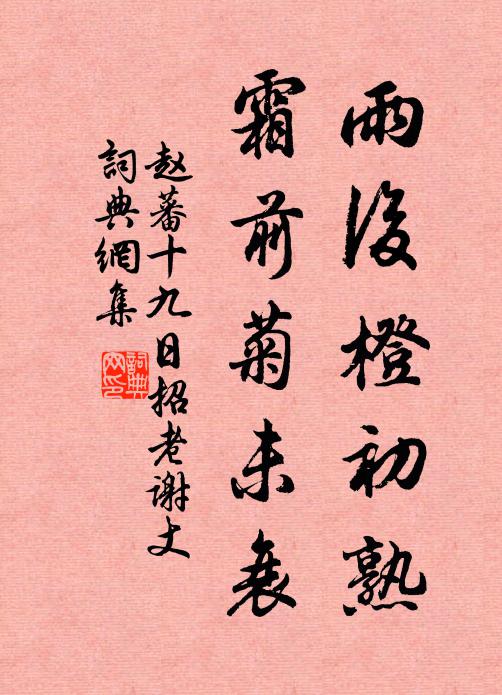 雨後橙初熟
霜前菊未衰
赵蕃十九日招老謝丈
詞典網集
詞典网印